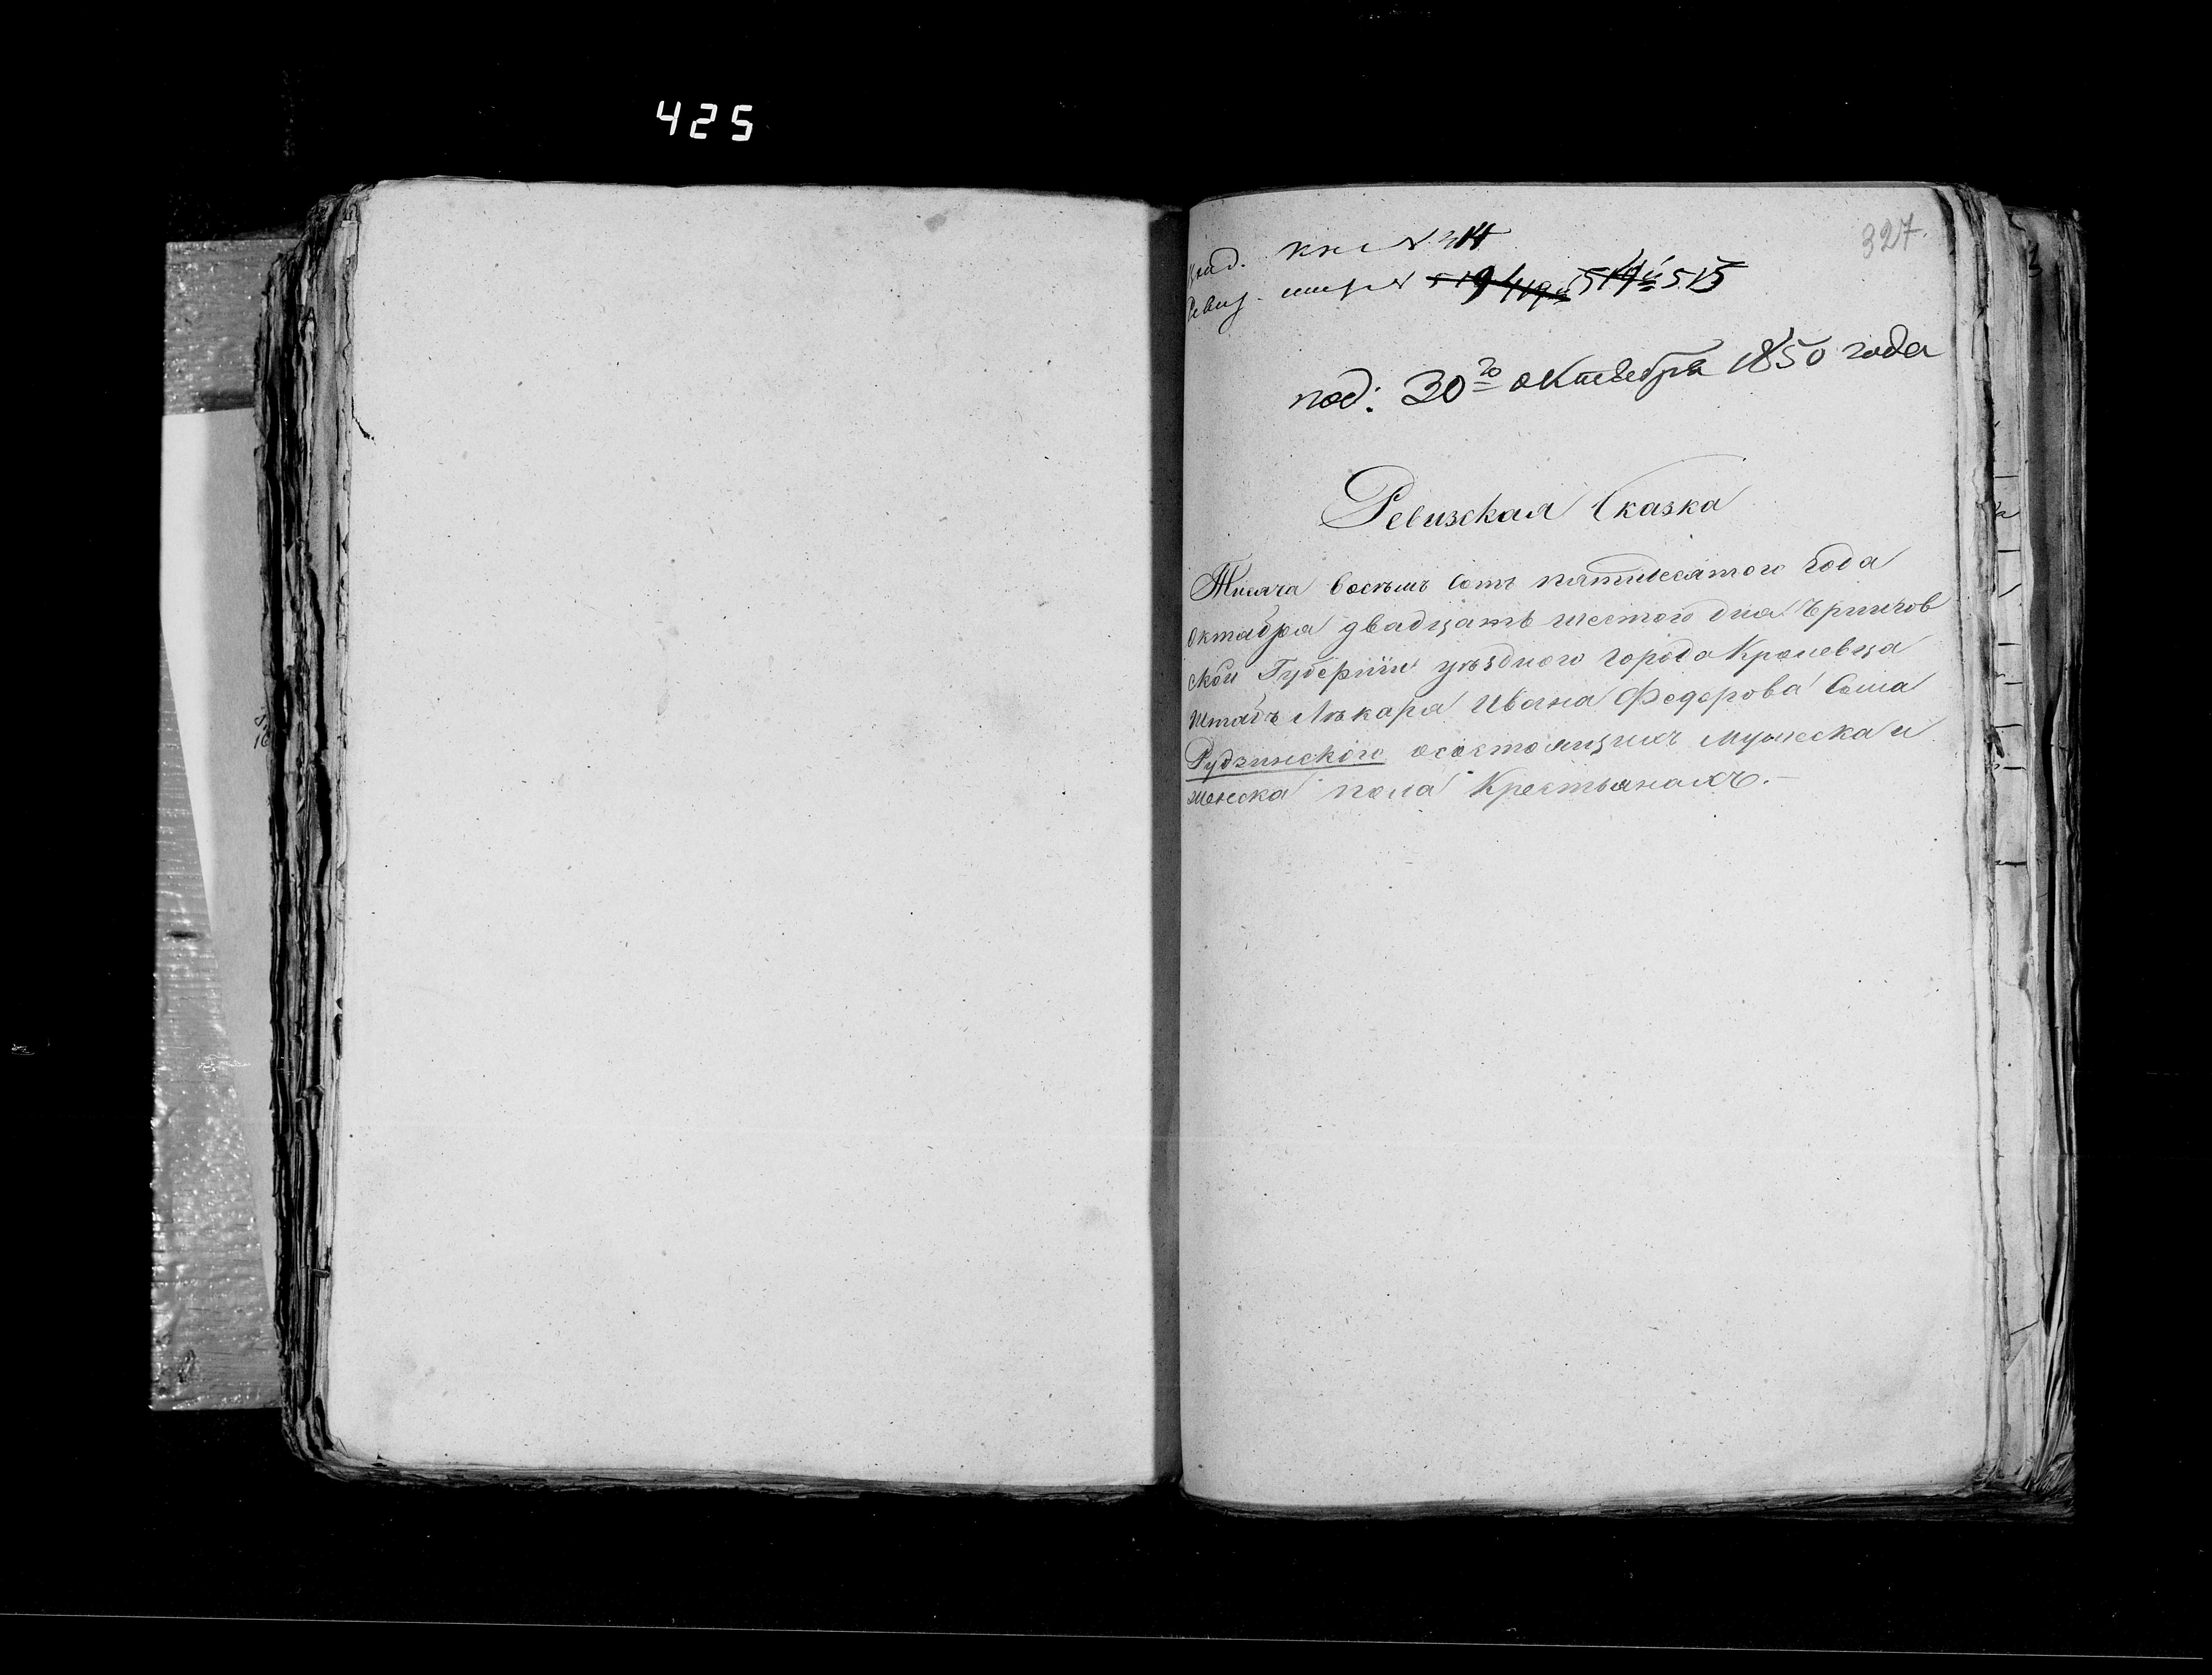 425
327.
под: 30го октября 1850 года
Ревизская Сказка
Тисяча восемъ сотъ пятидесятого года
октабра двадцать шестого дня Чернигов
ской Губернiи уѣздного города Кролевца
штабъ Лѣкара Ивана Федорова сына
Рудзинского осостоящихъ мужеска и
женска пола Крестьянахъ.-